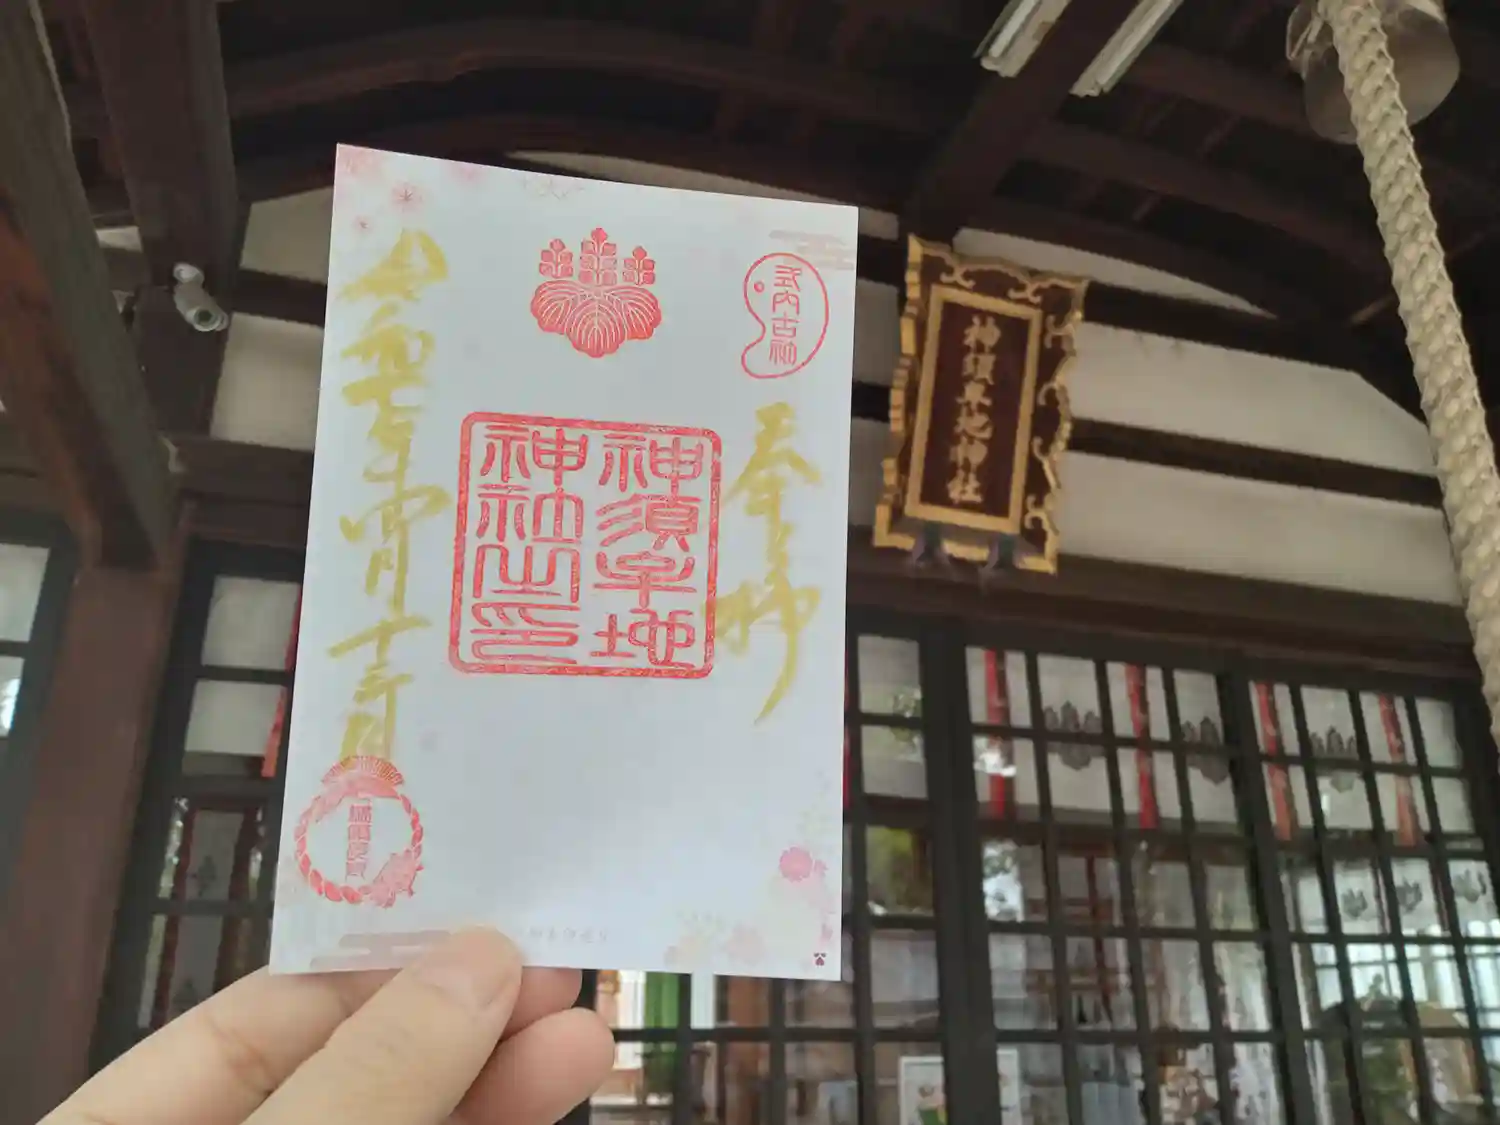 式内古社
奉拝
神須牟地
神社之印
令和七年四月十三日
神須牟地神社